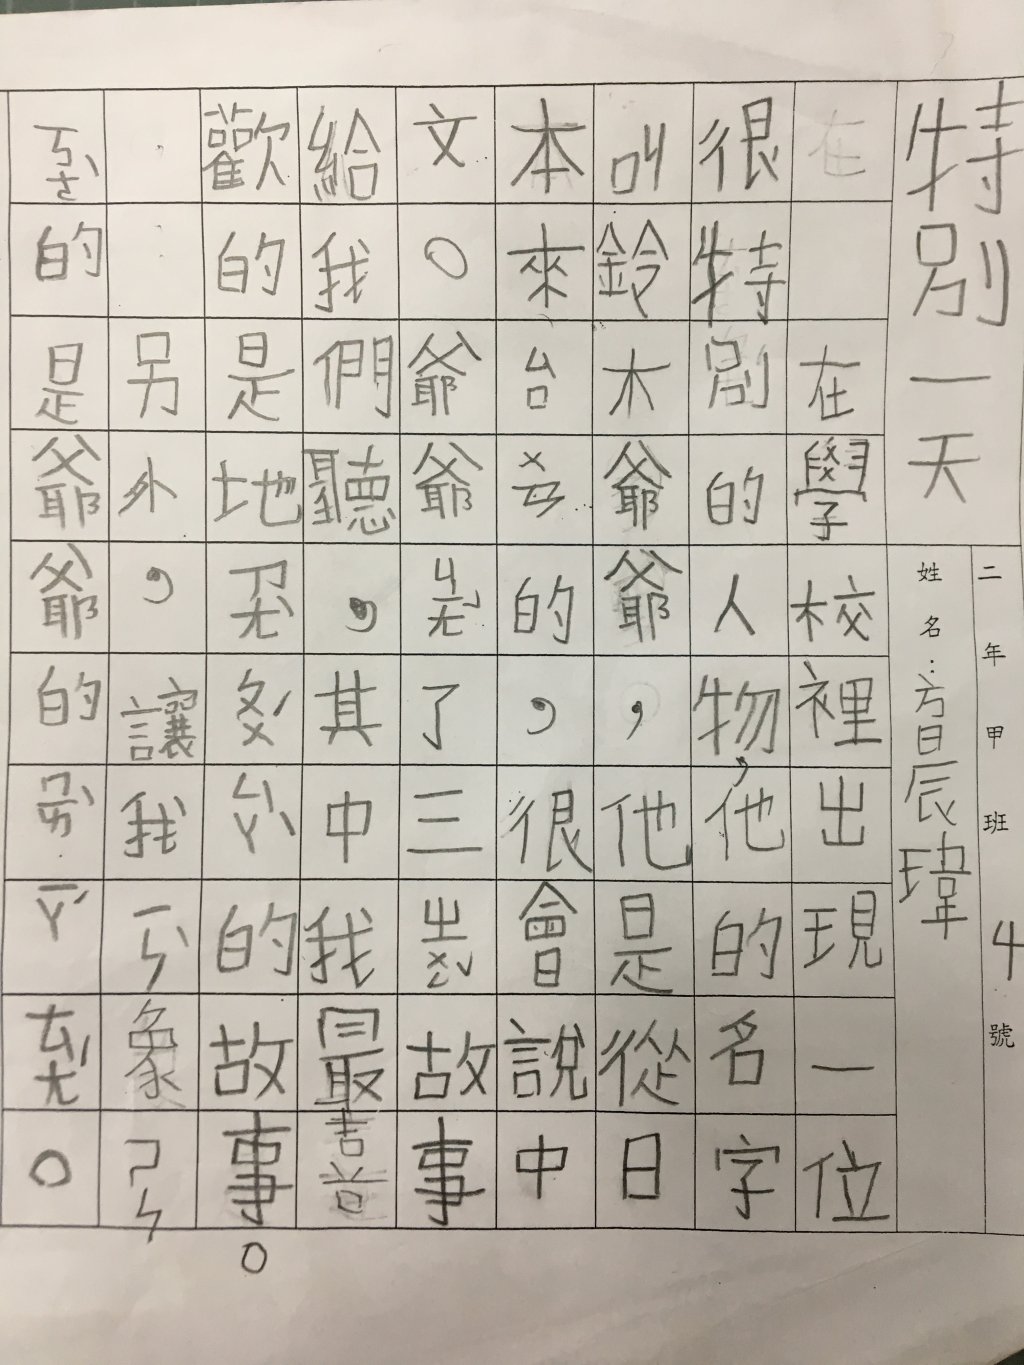 特別一天
二年甲班 4號
姓名:方晨瑋
在學校裡出現一位
很特別的人物,他的名字
叫鈴木爺爺,他是從日
本來台ㄨㄢ的,很會說中
文。爺爺ㄐㄧㄤˇ了三故事
給我們聽,其中我最喜
歡的是地ㄗㄤˋㄆㄨˊㄙㄚˋ的故事。
另外,讓我ㄧㄣˋ象ㄕㄣ
ㄎㄜˋ的是爺爺的ㄇㄞˋㄧㄚˊㄊㄤˊ。